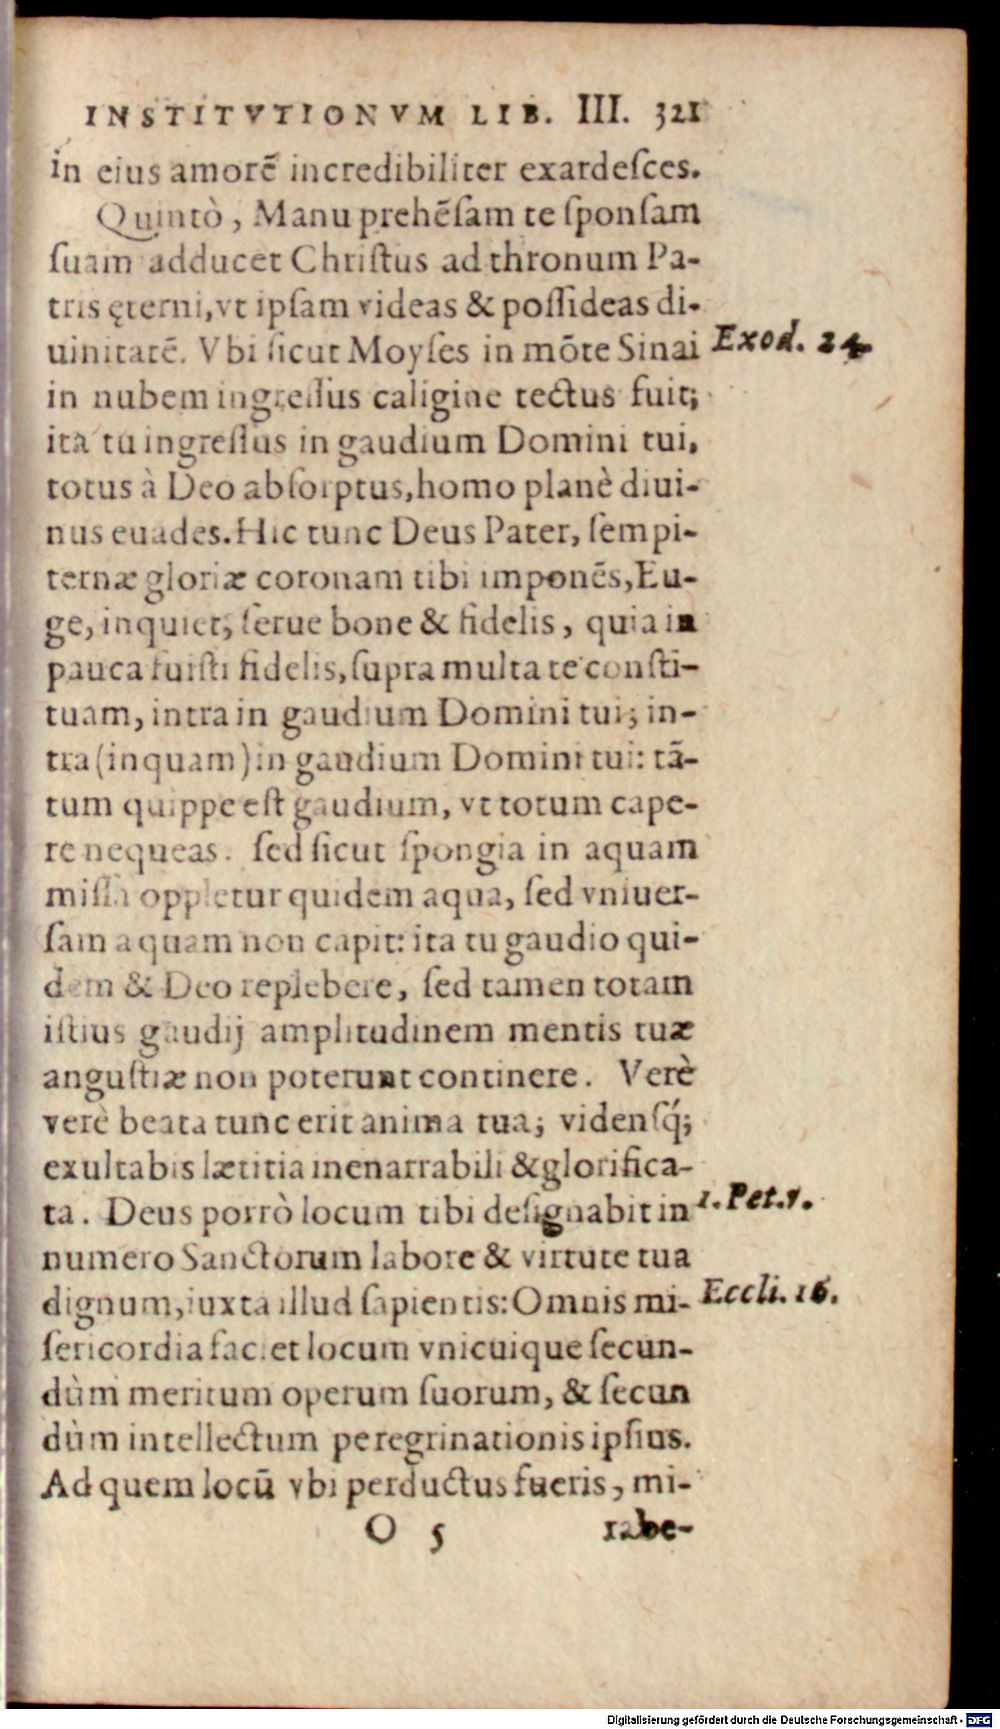 INSTITVTIONVM LIB. III. 321
in eius amorē incredibiliter exardeſces.
Quintò, Manu prehēſam te ſponſam
ſuam adducet Chriſtus ad thronum Pa-
tris ęterni, vt ipſam videas & poſſideas di-
uinitatē. Vbi ſicut Moyſes in mōte Sinai
Exod. 24.
in nubem ingreſſus caligine tectus fuit;
ita tu ingreſſus in gaudium Domini tui,
totus à Deo abſorptus, homo planè diui-
nus euades. Hic tunc Deus Pater, ſempi-
ternæ gloriæ coronam tibi imponēs, Eu-
ge, inquiet, ſerue bone & fidelis, quia in
pauca fuiſti fidelis, ſupra multa te conſti-
tuam, intra in gaudium Domini tui; in-
tra (inquam) in gaudium Domini tui: tā-
tum quippe eſt gaudium, vt totum cape-
re nequeas. ſed ſicut ſpongia in aquam
miſſa oppletur quidem aqua, ſed vniuer-
ſam aquam non capit: ita tu gaudio qui-
dem & Deo replebere, ſed tamen totam
iſtius gaudij amplitudinem mentis tuæ
anguſtiæ non poterunt continere. Verè
verè beata tunc erit anima tua; videnſq́;
exultabis lætitia inenarrabili & glorifica-
ta. Deus porrò locum tibi deſignabit in
1. Pet. 1.
numero Sanctorum labore & virtute tua
dignum, iuxta illud ſapientis: Omnis mi-
Eccli. 16.
ſericordia faciet locum vnicuique ſecun-
dùm meritum operum ſuorum, & ſecun
dùm intellectum peregrinationis ipſius.
Ad quem locū vbi perductus fueris, mi-
O 5 rabe-
Digitalisierung gefördert durch die Deutsche Forschungsgemeinschaft - DFG